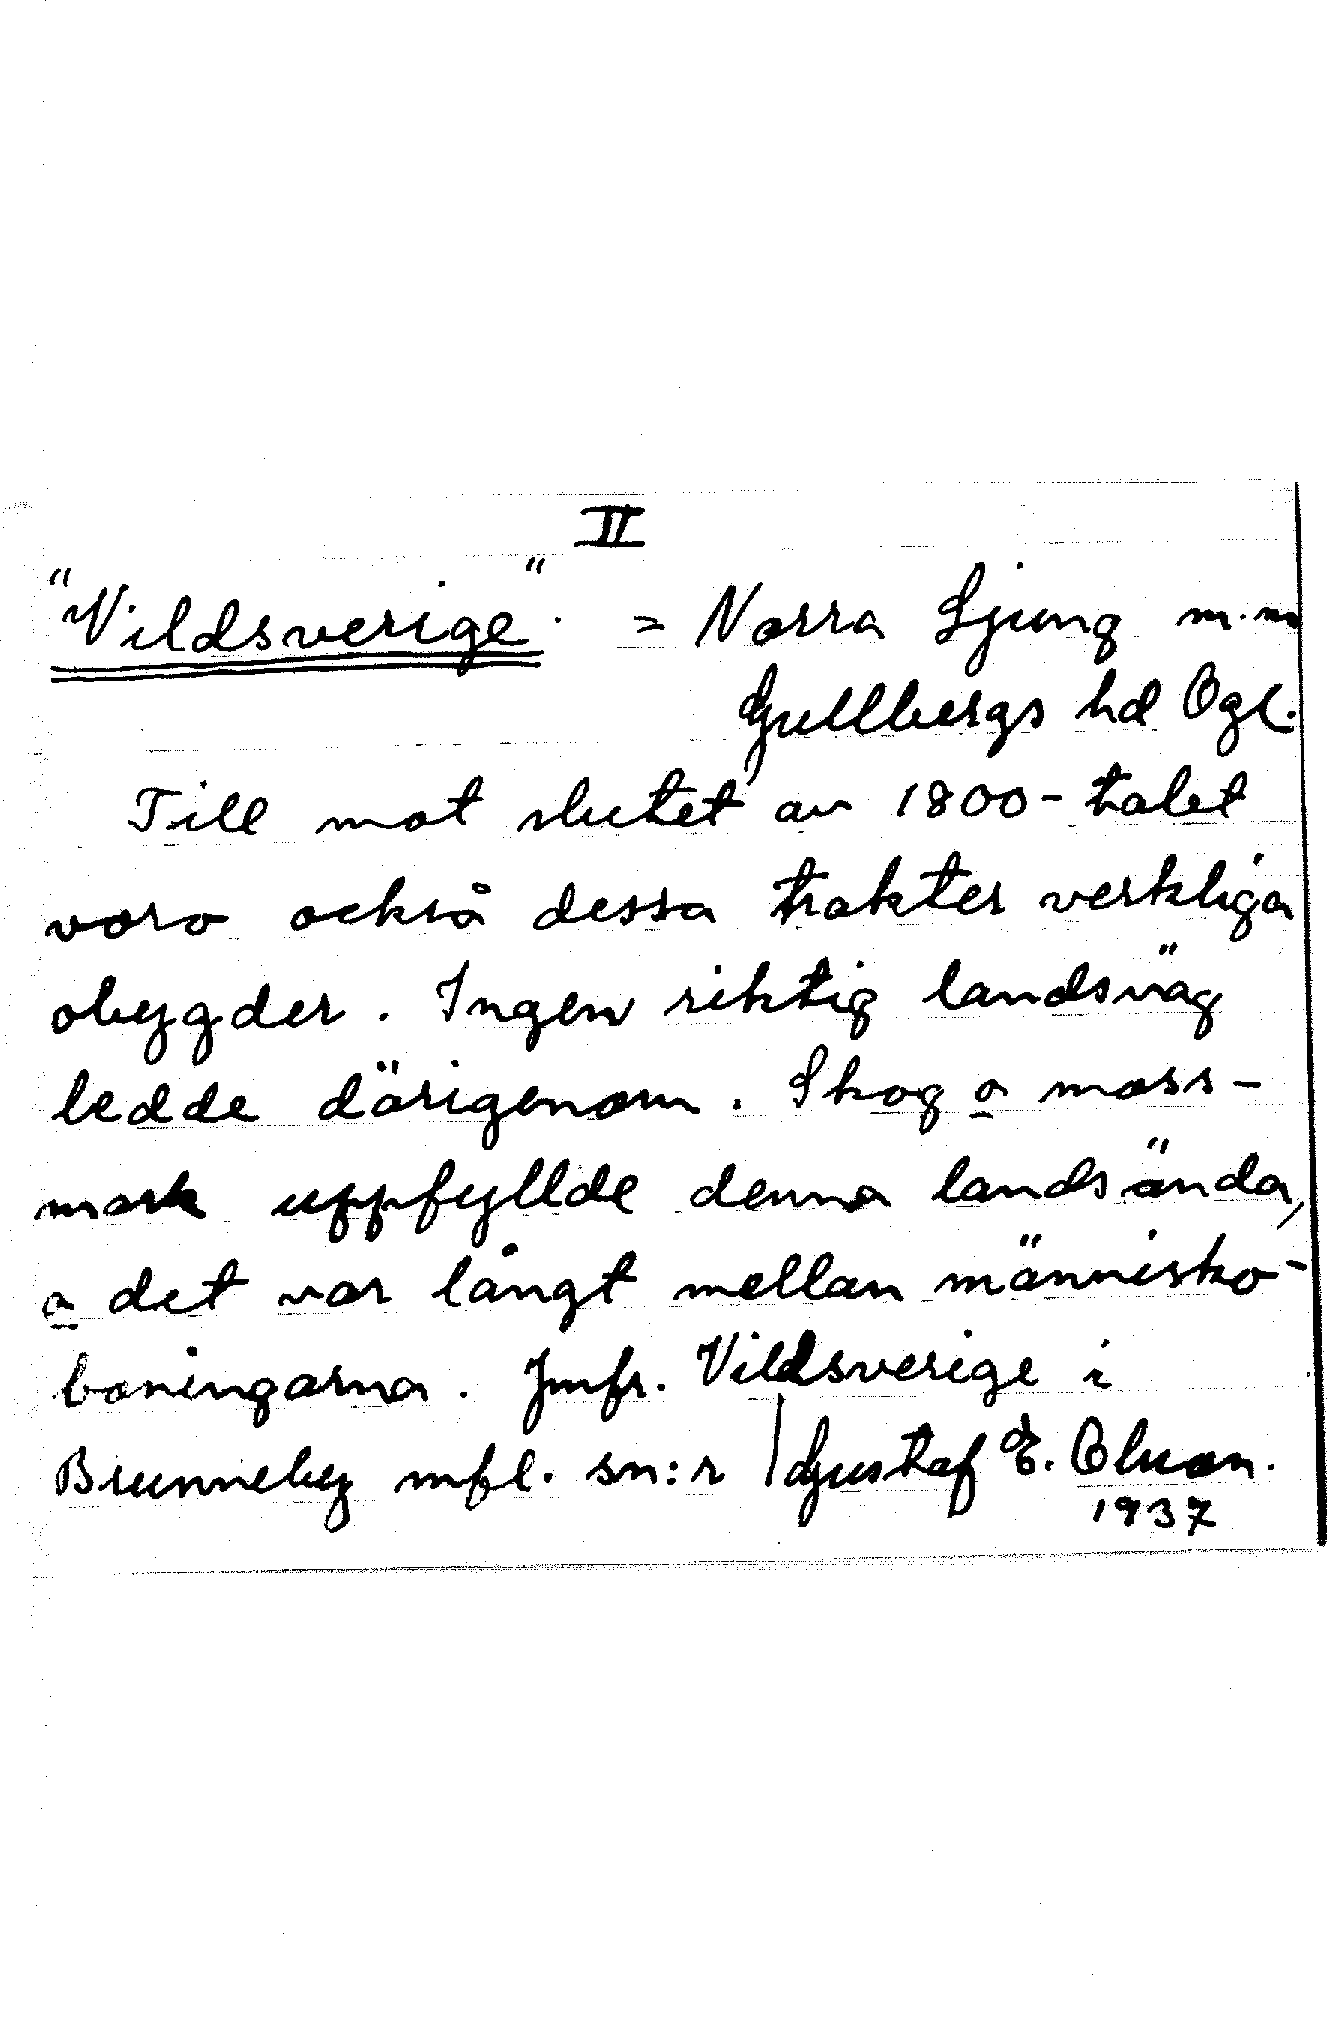 II
"Vildsverige". = Norra Ljung m.m
Gullbergs hd Ögl.
Till mot slutet av 1800-talet
voro också dessa trakter verkliga
obygder. Ingen riktig landsväg
ledde därigenom. Skog o moss-
mark uppfyllde denna landsända,
o det var långt mellan människo-
boningarna. Jmfr. Vildsverige i
Brunneby mfl. sn:r / Gustaf E. Olsson.
1937